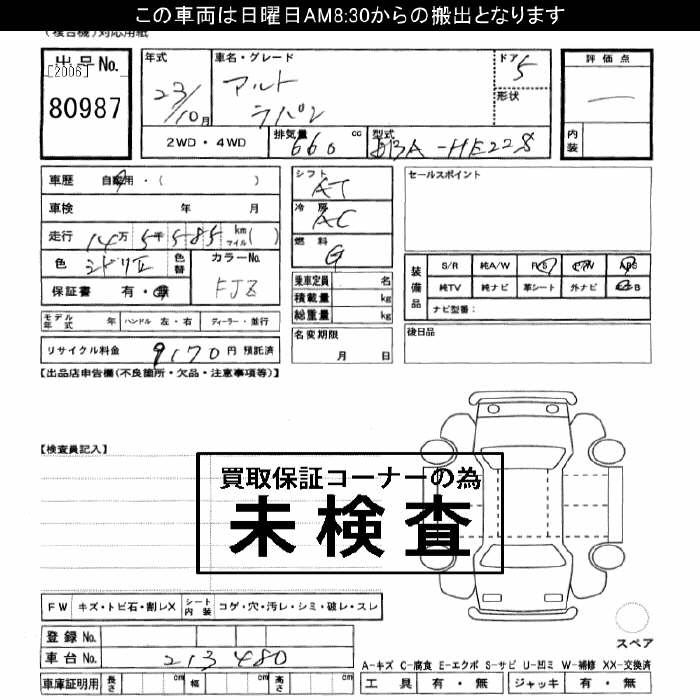 この車両は日曜日AM8:30からの搬出となります
(複合機)対応用紙
出品No.
[2006]
80987
年式
23/10月
車名・グレード
アルト
ラパン
ドア
5
形状
2WD・4WD
排気量 660 cc
型式 DBA-HE22S
評価点
内装
車歴 自家用・( )
車検 年 月
走行 14万5千585 km マイル( )
色 ミドリII 色替
カラーNo. FJZ
保証書 有・無
シフト AT
冷房 AC
燃料 G
乗車定員 名
積載量 kg
総重量 kg
セールスポイント
装備品
S/R 純A/W P/S P/W ABS
純TV 純ナビ 革シート 外ナビ エアB
ナビ型番:
モデル年式 年 ハンドル 左・右 ディーラー・並行
名変期限
月 日
後日品
リサイクル料金 9170円 預託済
【出品店申告欄(不良箇所・欠品・注意事項等)】
【検査員記入】
買取保証コーナーの為
未検査
FW キズ・トビ石・割レX シート内装 コゲ・穴・汚レ・シミ・破レ・スレ
登録No.
車台No. 213480
車庫証明用 長さ cm 幅 cm 高さ cm
スペア
A-キズ C-腐食 E-エクボ S-サビ U-凹ミ W-補修 XX-交換済
工具 有・無 ジャッキ 有・無